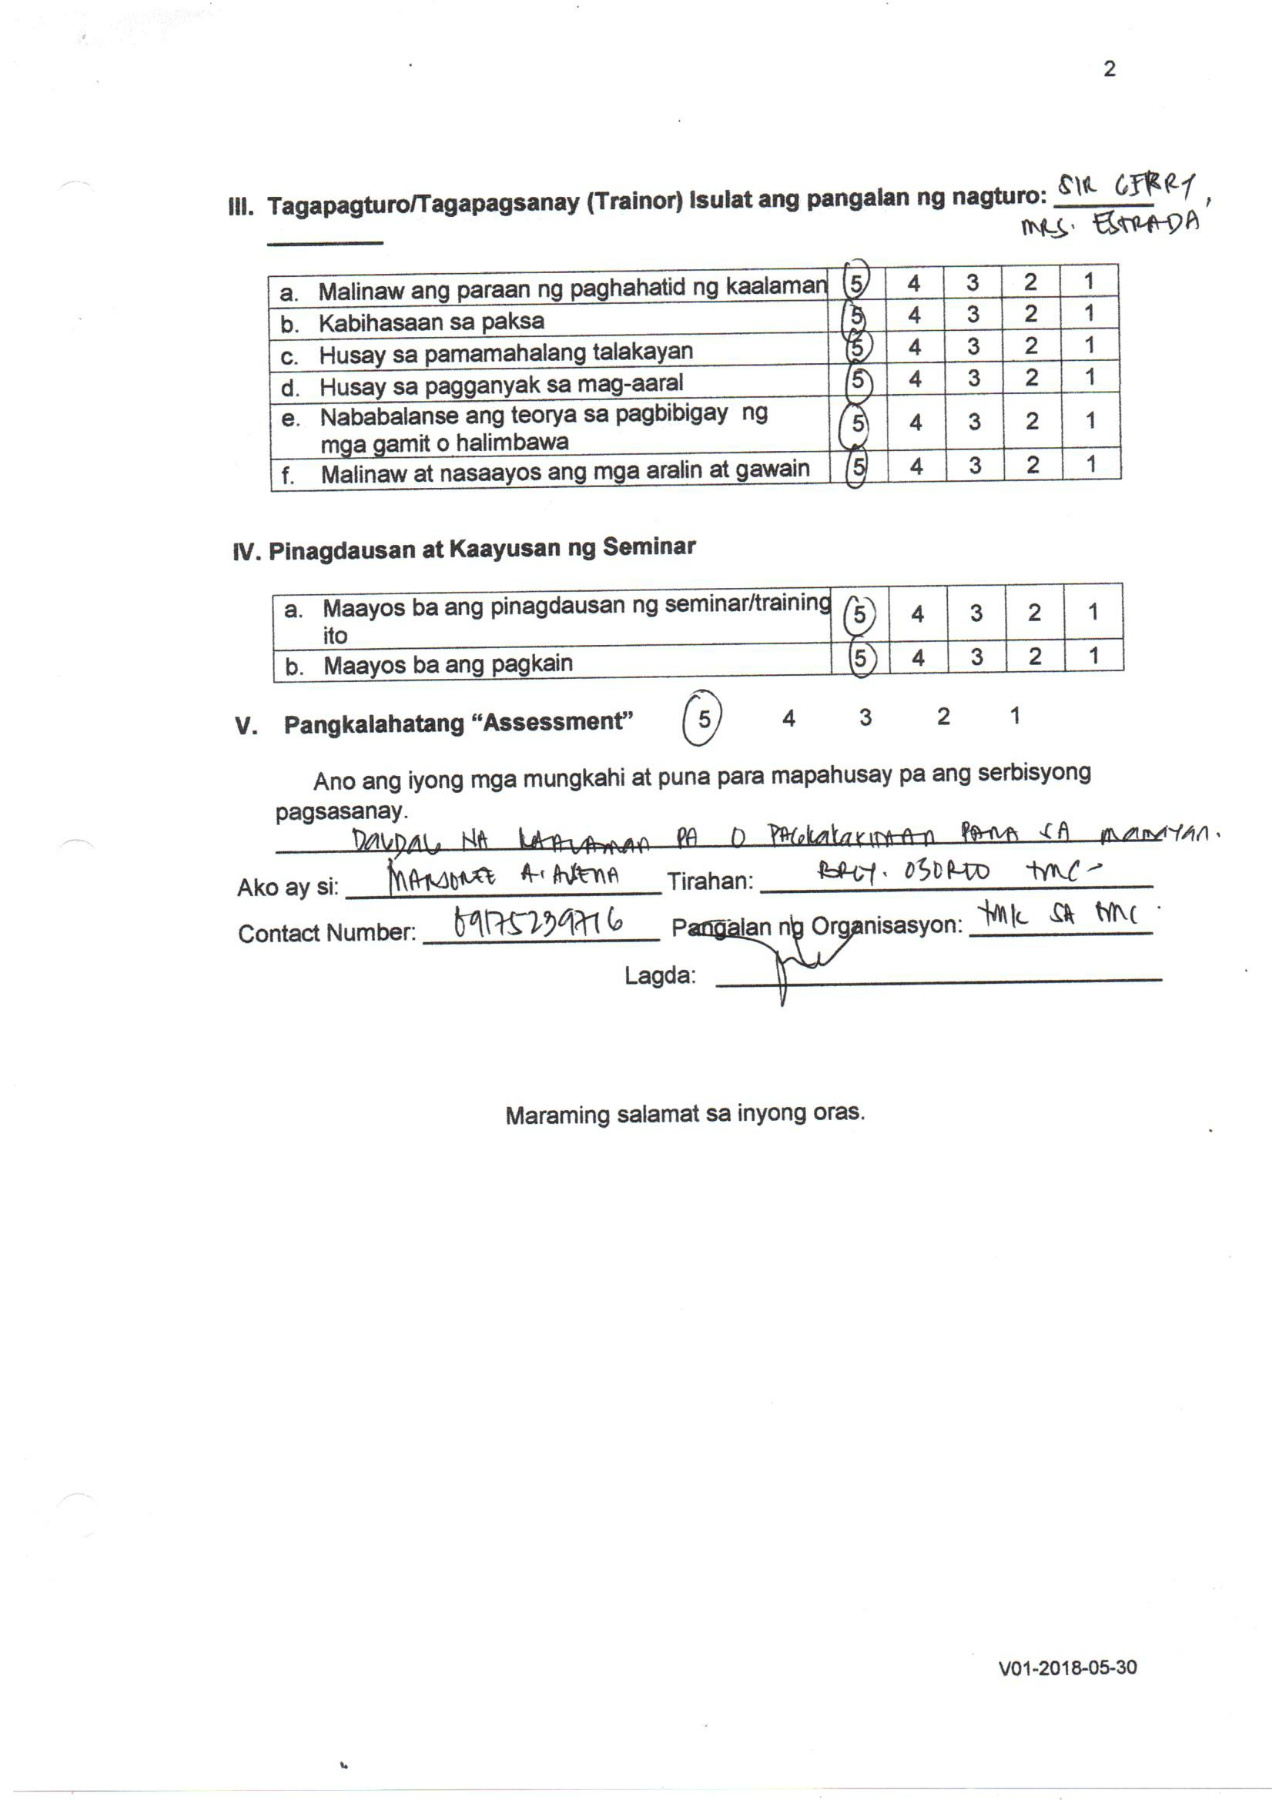 2
III. Tagapagturo/Tagapagsanay (Trainor) Isulat ang pangalan ng nagturo: SIR GERRY,
MRS. ESTRADA
a. Malinaw ang paraan ng paghahatid ng kaalaman 5 4 3 2 1
b. Kabihasaan sa paksa 5 4 3 2 1
c. Husay sa pamamahalang talakayan 5 4 3 2 1
d. Husay sa pagganyak sa mag-aaral 5 4 3 2 1
e. Nababalanse ang teorya sa pagbibigay ng
mga gamit o halimbawa 5 4 3 2 1
f. Malinaw at nasaayos ang mga aralin at gawain 5 4 3 2 1
IV. Pinagdausan at Kaayusan ng Seminar
a. Maayos ba ang pinagdausan ng seminar/training 5 4 3 2 1
ito
b. Maayos ba ang pagkain 5 4 3 2 1
V. Pangkalahatang “Assessment” 5 4 3 2 1
Ano ang iyong mga mungkahi at puna para mapahusay pa ang serbisyong
pagsasanay.
DAGDAG NA KAALAMAN PA O PARA SA
Ako ay si: A. Tirahan: BRGY. OSORIO TMC
Contact Number: 09175239716 Pangalan ng Organisasyon: TMK SA TMC
Lagda:
Maraming salamat sa inyong oras.
V01-2018-05-30